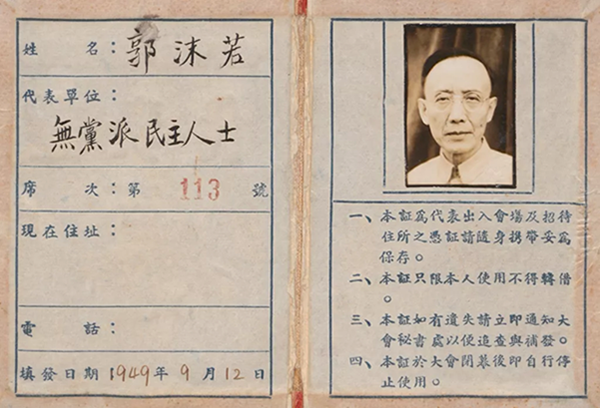 姓 名：郭沫若
代表單位：
無黨派民主人士
席 次：第 113 號
現在住址：
電 話：
填發日期：1949年9月12日
一、本証爲代表出入會場及招待
住所之憑証請隨身携帶妥爲
保存。
二、本証只限本人使用不得轉借
。
三、本証如有遺失請立即通知大
會秘書處以便追查與補發。
四、本証於大會閉幕後即自行停
止使用。